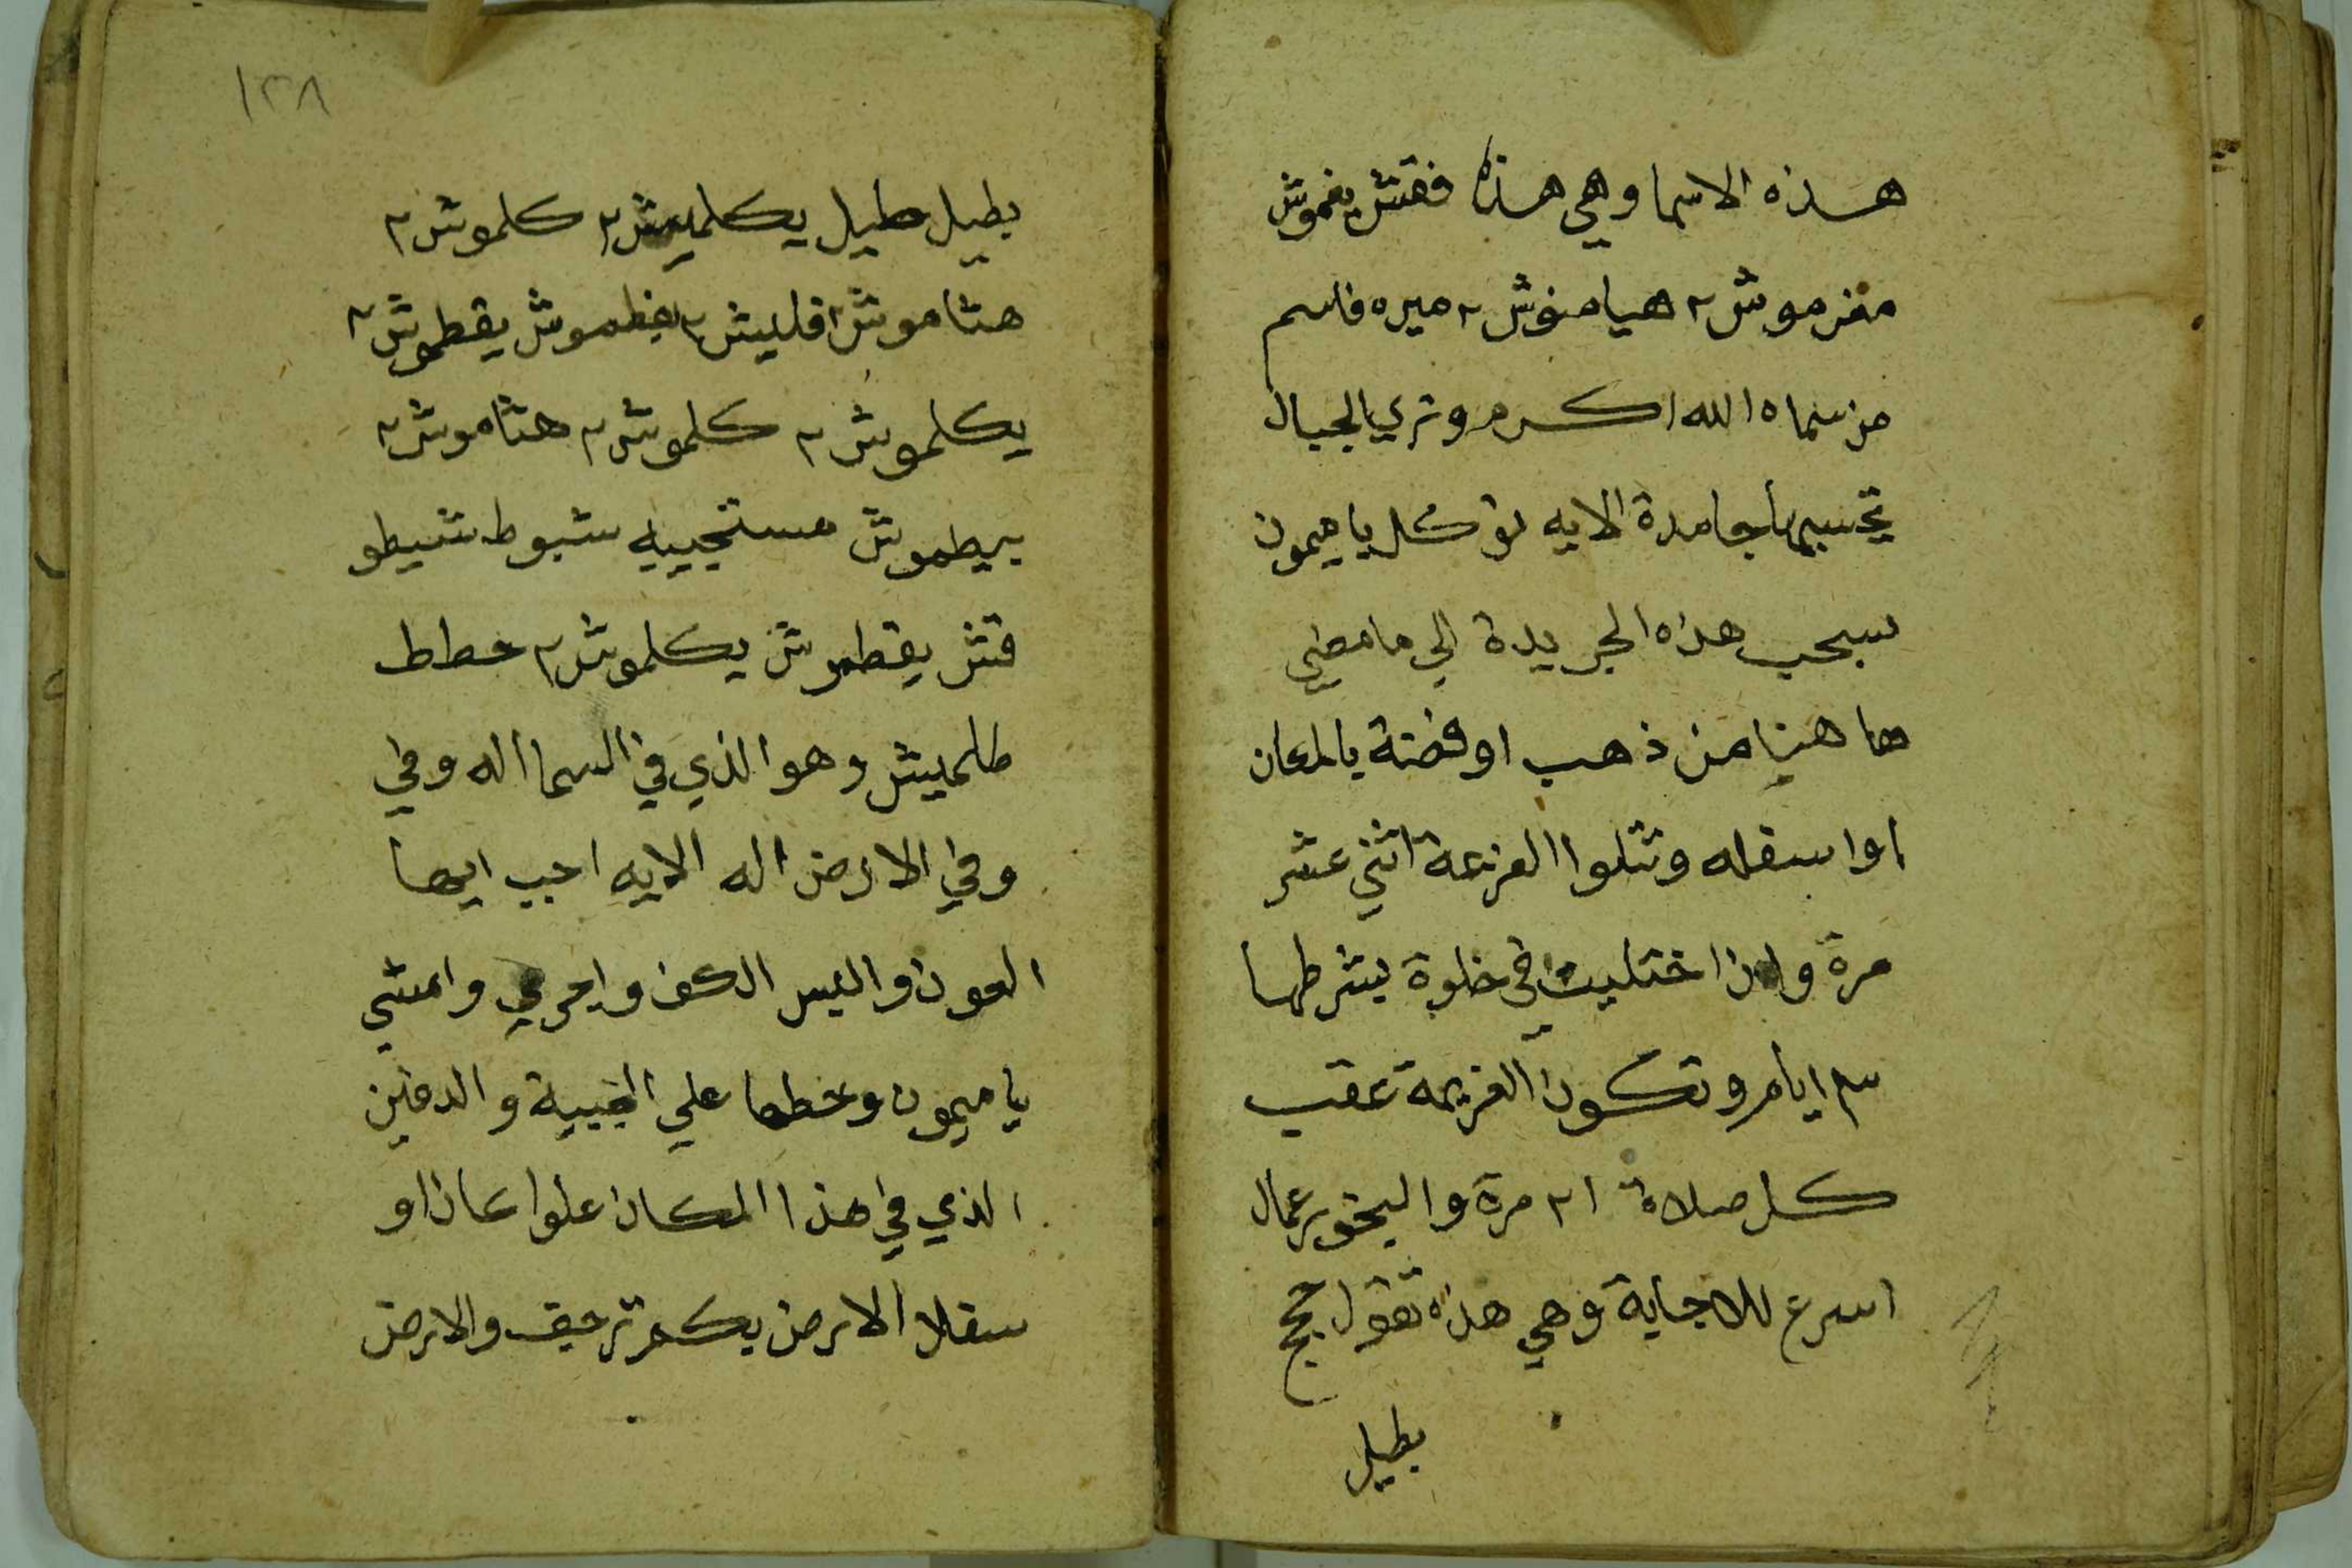 هذه الاسما وهي هذا فقش يغموش
مغرموش ٢ هيا منوش ٢ ميره فاسم
من سماه الله اكرم وتري الجبال
تحسبها جامدة الايه توكل يا ميمون
بسحب هذه الجريدة الي ما مضي
ها هنا من ذهب او فضة يا لمعان
او اسفله وتتلوا العزيمة اثني عشر
مرة واذا اختليت في خلوة بشرطها
ايام وتكون العزيمة عقب
كل صلاة ٢١ مرة والبخور عمال
اسرع للاجابة وهي هذه تقول
بطيل
١٢٨
بطيل طيل يكلميش ٢ كلموش ٢
هتاموش اقليش ٢ يغطموش يقطموش ٢
يكلموش ٢ كلموش ٢ هتاموش ٢
بيطموش مستجيبيه شبوط شيطو
قش يقطموش يكلموش ٢ خطاط
طلميش وهو الذي في السما اله وفي
وفي الارض اله الايه اجب ايها
العون والبس الكف واجري وامشي
يا ميمون وحطها علي الخبية والدفين
الذي في هذا المكان علوا كان او
سفلا الارض بكم ترجف والارض